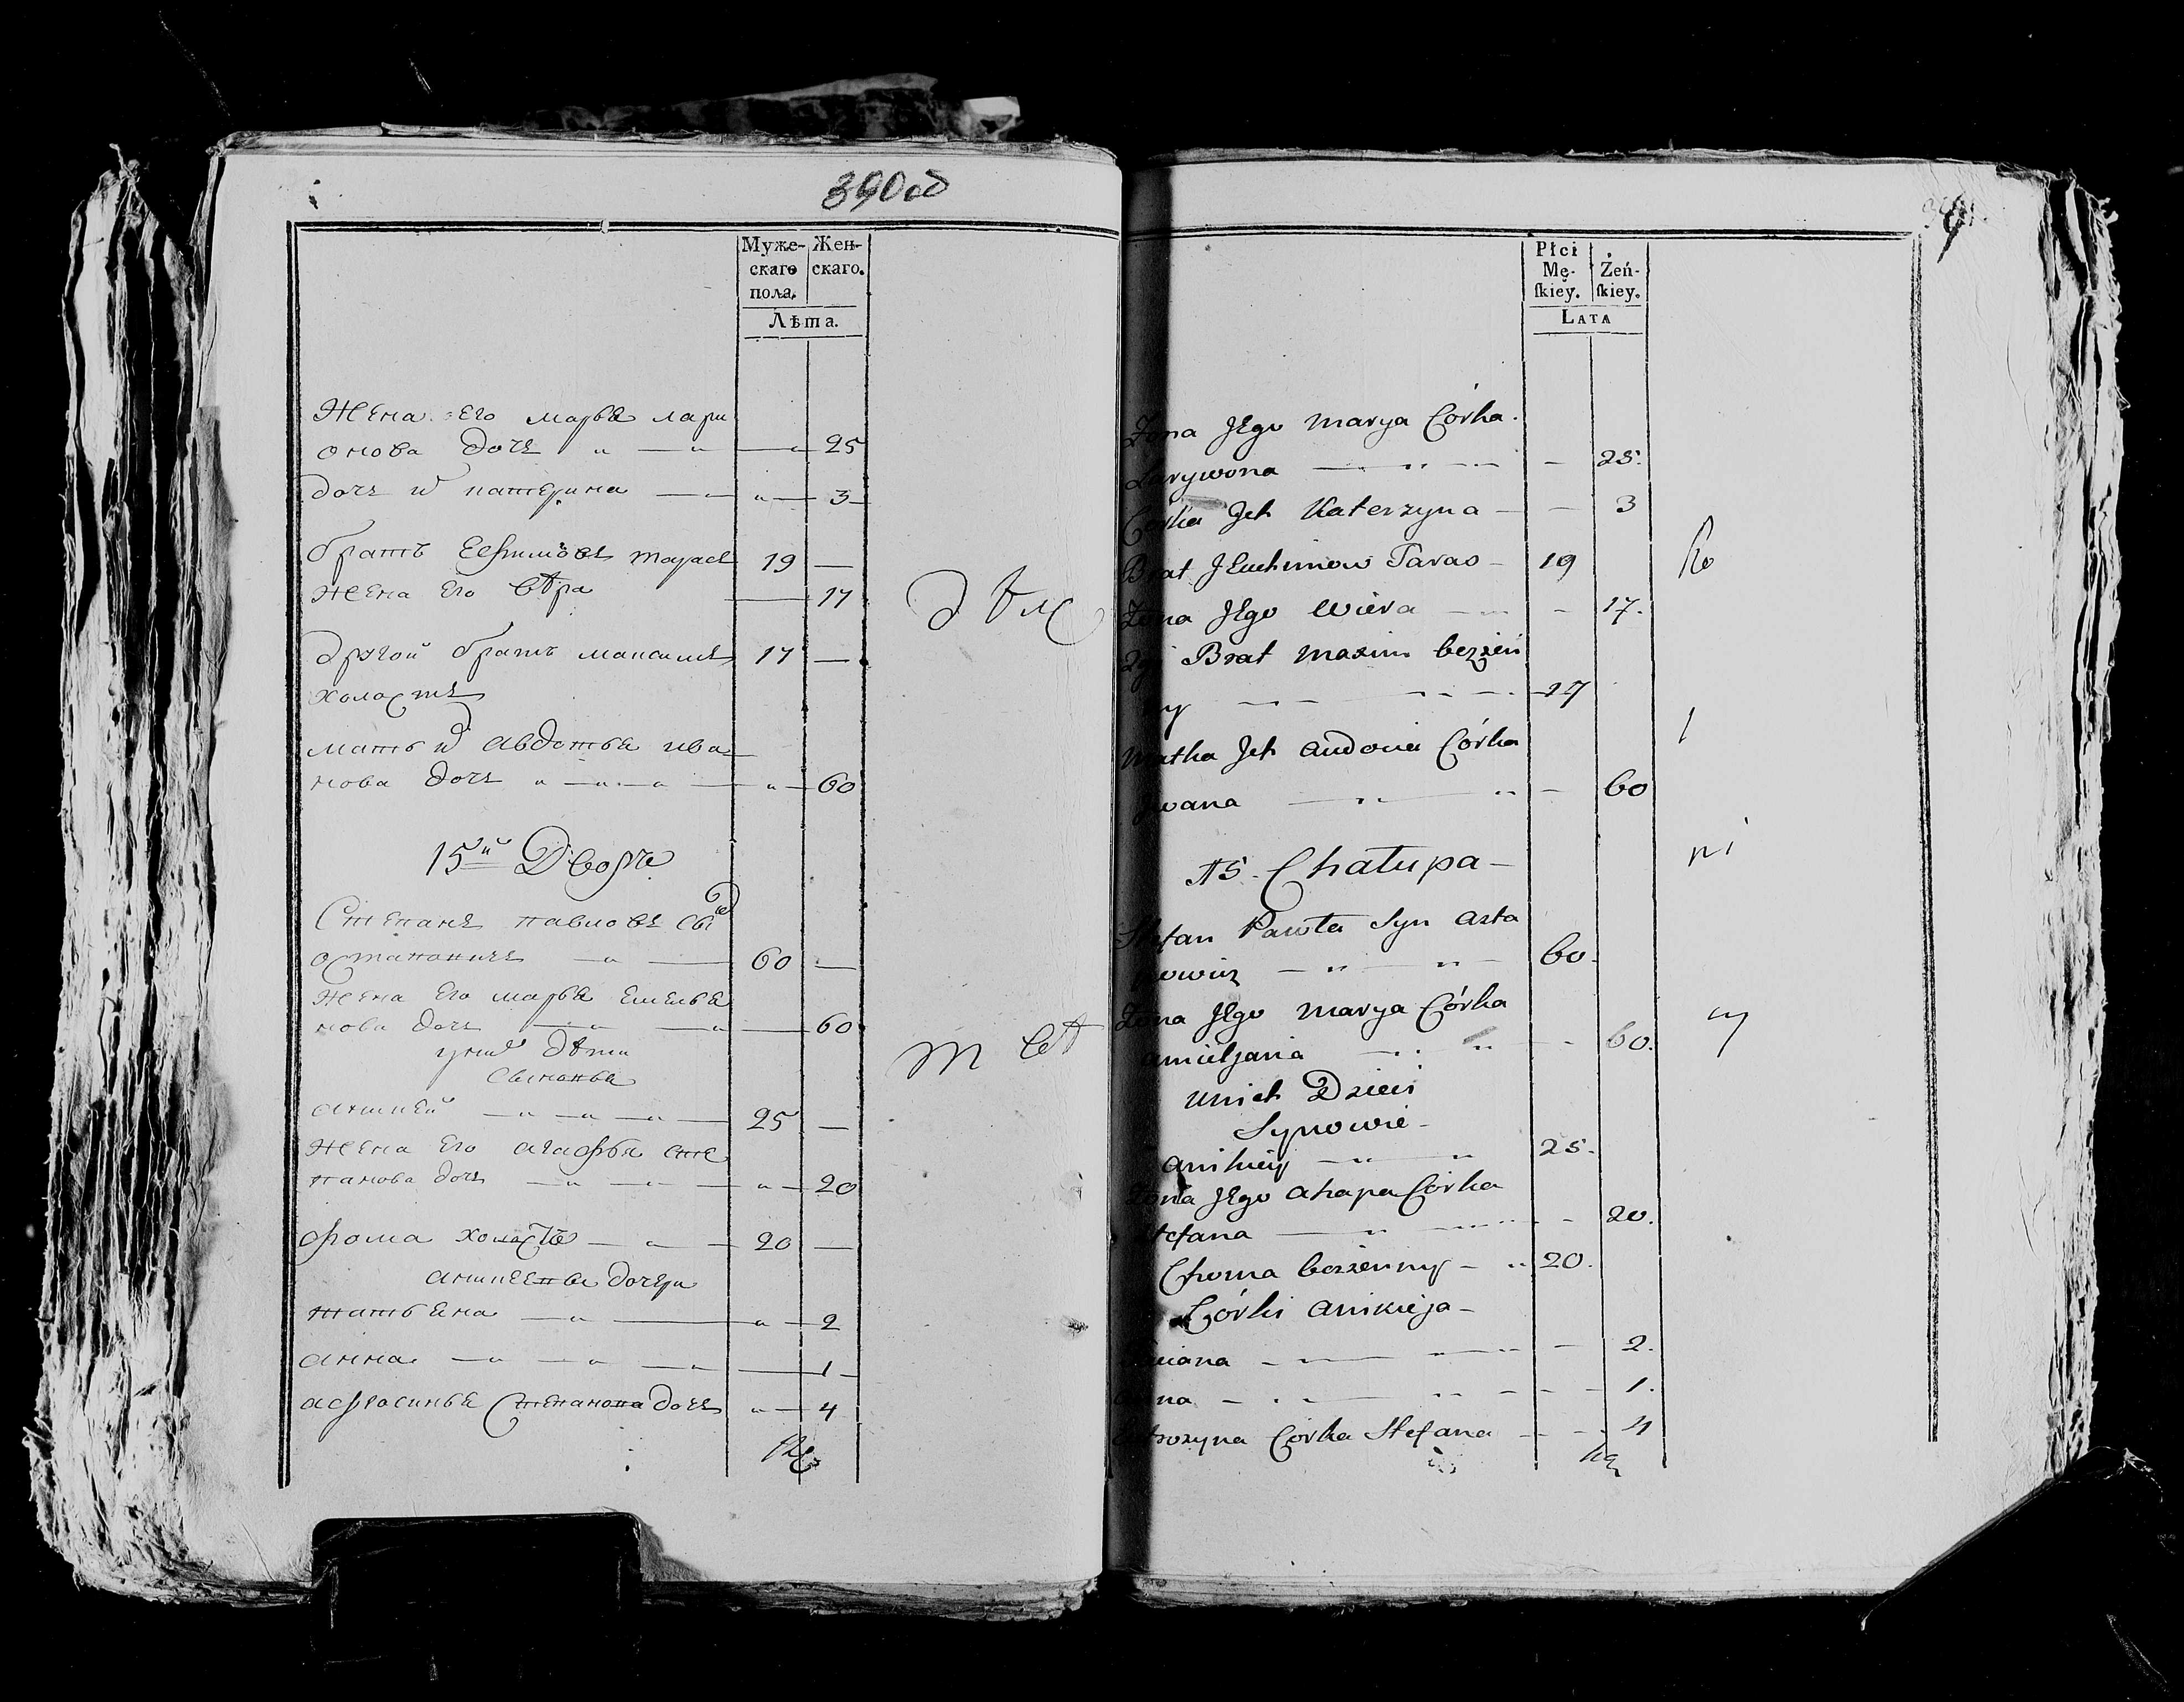 390 об
Муже-
скаго
пола.
Жен-
скаго.
Лѣта.
Жена Его марья лари
онова дочь 25
дочь их катерина 3
братъ Ефимовъ тарасъ 19
жена Его вѣра 17
другой братъ максимъ 17
холостъ
мать их авдотья ива
нова дочь 60
15й Дворъ
Степанъ павловъ сынъ
остапоничъ 60
жена Его марья Емелья
нова дочь 60
у них дѣти
сыновья
аникей 25
жена Его агафья сте
панова дочь 20
фома холостъ 20
аникеевы дочери
татьяна 2
анна 1
афросинья Степанова дочь 4
дѣлс
т вѣ
Płci
Mę-
ſkiey.
Żeń-
ſkiey.
LATA
Żona JEgo Marya Córka
Larywona 25.
Córka Ich Katerzyna 3
Brat JEuchimow Taras 19
Żona JEgo Wiera 17.
2gi Brat Maxim bezżen
ny 17
Matka Ich Audocia Córka
Jwana 60
15. Chałupa
Stefan Pawła Syn Asta
powicz 60.
Żona JEgo Marya Córka
Amieljana 60.
Unich Dzieci
Synowie
Anikiey 25.
Żona JEgo Ahapa Córka
Stefana 20.
Choma bezżenny 20.
Córki Anikieja
Taciana 2.
Anna 1.
Córka Stefana 4
ko
l
ni